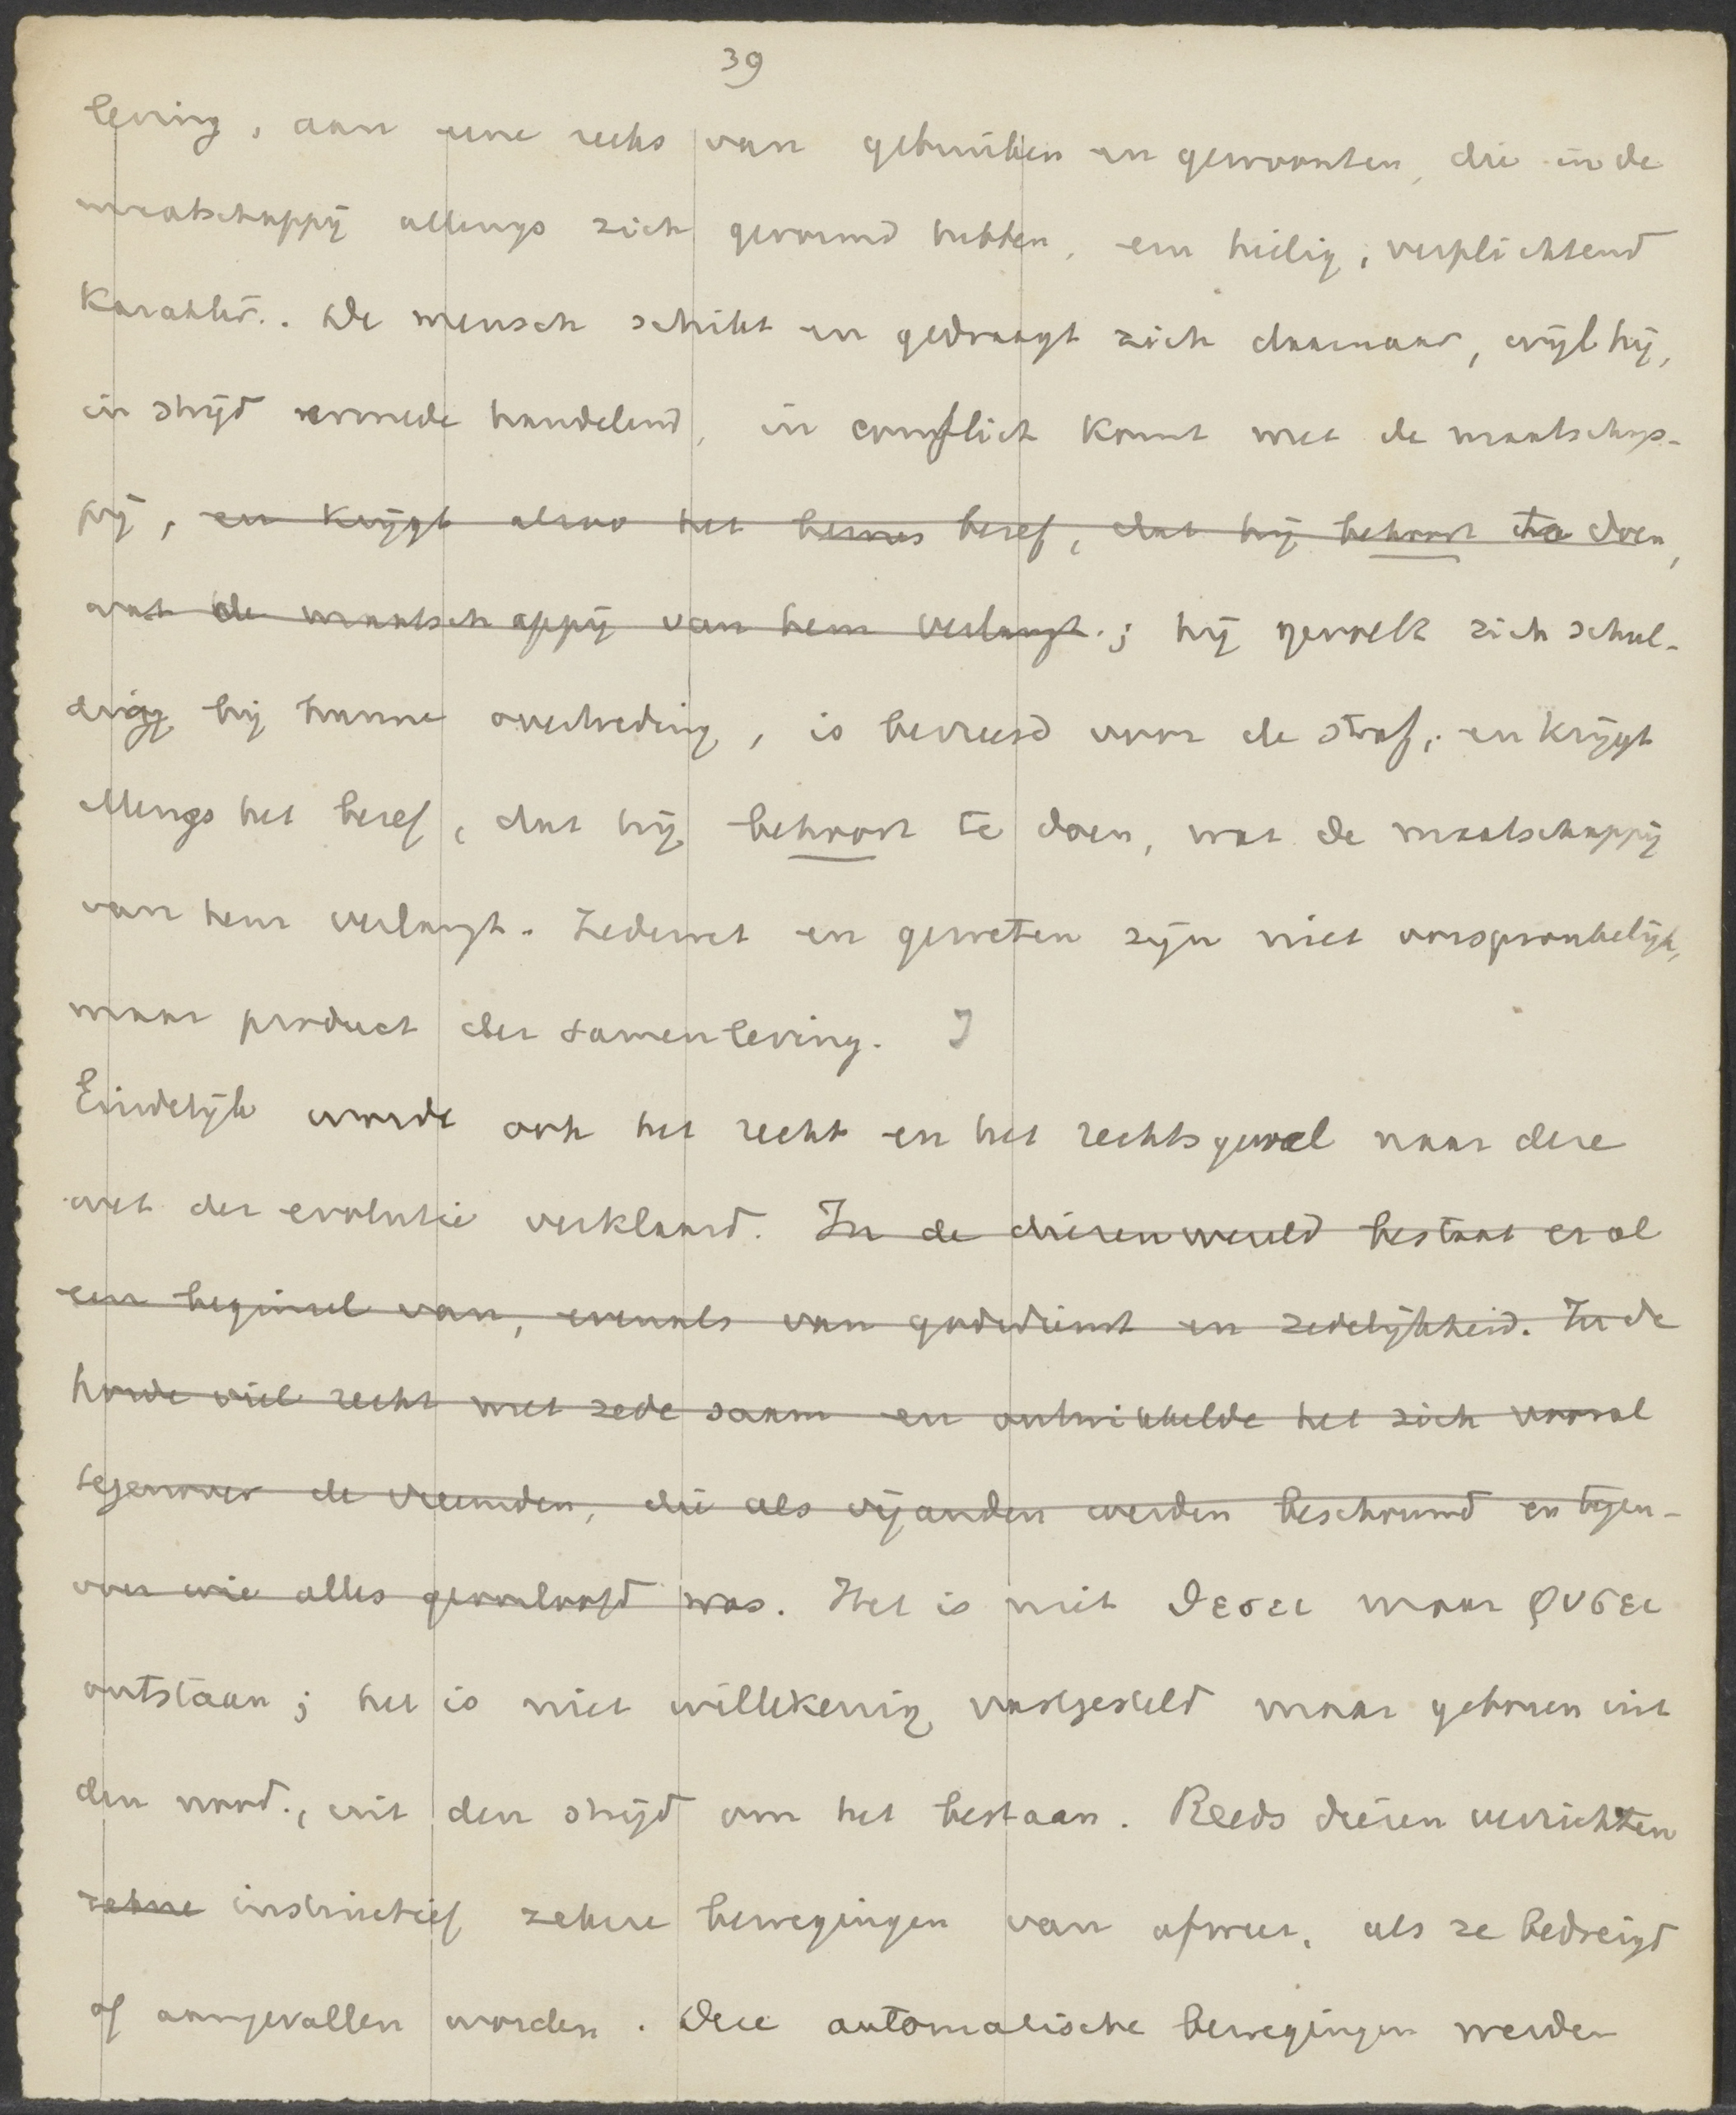 39
leving, aan eene reeks van gebruiken en gewoonten, die in de
maatschappij allengs zich gevormd hebben, een heilig, verplichtend
karakter. De mensch schikt en gedraagt zich daarnaar, wijl hij,
in strijd ermede handelend, in conflict komt met de maatschap-
pij, en krijgt alzoo het besef, dat hij behoort te doen,
wat de maatschappij van hem verlangt.; hij gevoelt zich schul-
dig bij hunne overtreding, is bevreesd voor de straf, en krijgt
allengs het besef, dat hij behoort te doen, wat de maatschappij
van hem verlangt. Zedewet en geweten zijn niet oorspronkelijk,
maar product der samenleving.
Eindelijk wordt ook het recht en het rechtsgevoel naar deze
wet der evolutie verklaard. In de dierenwereld bestaat er al
een beginsel van, evenals van godsdienst en zedelijkheid. In de
horde viel recht met zede saam en ontwikkelde het zich vooral
tegenover de vreemden, die als vijanden werden beschouwd en tegen-
over wie alles geoorloofd was. Het is niet θεσει maar φυσει
ontstaan; het is niet willekeurig vastgesteld maar geboren uit
den nood, uit den strijd om het bestaan. Reeds dieren verrichten
zekere instinctief zekere bewegingen van afweer, als ze bedreigd
of aangevallen worden. Deze automatische bewegingen werden